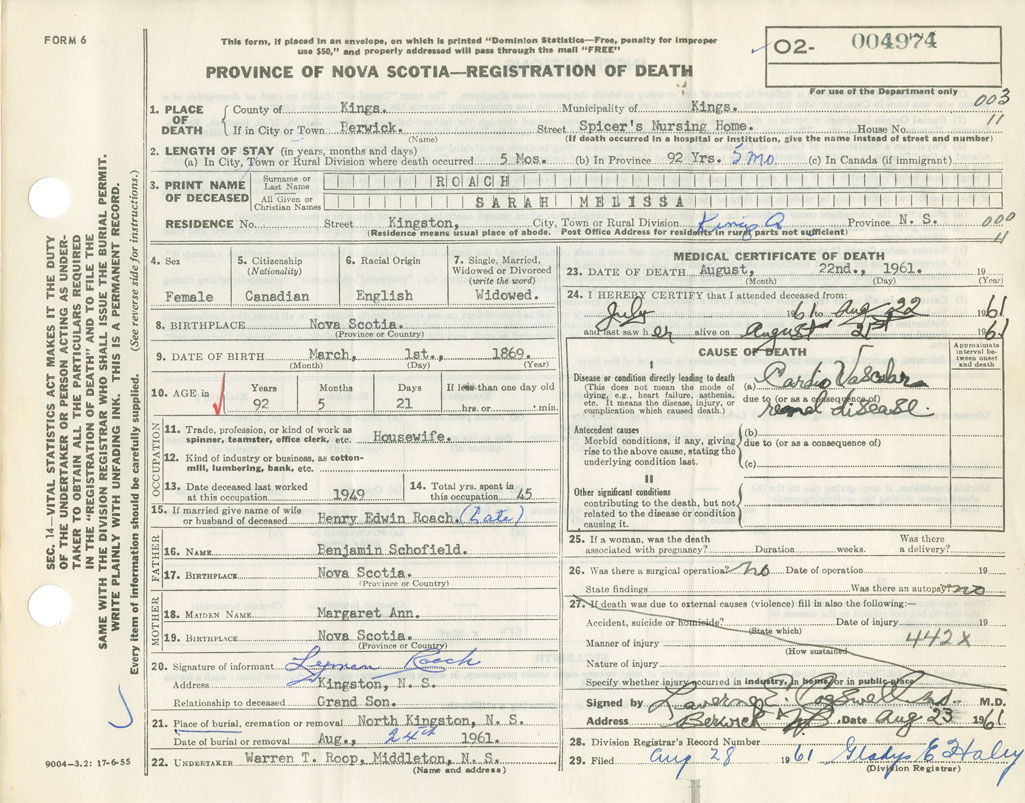 FORM 6
This form, if placed in an envelope, on which is printed "Dominion Statistics—Free, penalty for improper
use $50," and properly addressed will pass through the mail "FREE"
PROVINCE OF NOVA SCOTIA—REGISTRATION OF DEATH
02- 004974
For use of the Department only
003
11
SEC. 14—VITAL STATISTICS ACT MAKES IT THE DUTY
OF THE UNDERTAKER OR PERSON ACTING AS UNDER-
TAKER TO OBTAIN ALL THE PARTICULARS REQUIRED
IN THE "REGISTRATION OF DEATH" AND TO FILE THE
SAME WITH THE DIVISION REGISTRAR WHO SHALL ISSUE THE BURIAL PERMIT.
WRITE PLAINLY WITH UNFADING INK. THIS IS A PERMANENT RECORD.
Every item of information should be carefully supplied. (See reverse side for instructions.)
1. PLACE OF DEATH County of Kings. Municipality of Kings.
If in City or Town Berwick. Street Spicer's Nursing Home. House No.
(Name) (If death occurred in a hospital or institution, give the name instead of street and number)
2. LENGTH OF STAY (in years, months and days)
(a) In City, Town or Rural Division where death occurred 5 Mos. (b) In Province 92 Yrs. 5 mo. (c) In Canada (if immigrant)
3. PRINT NAME OF DECEASED
Surname or Last Name ROACH
All Given or Christian Names SARAH MELISSA
RESIDENCE No. Street Kingston, City, Town or Rural Division Kings Co Province N. S. 000
11
(Residence means usual place of abode. Post Office Address for residents in rural parts not sufficient)
4. Sex
Female
5. Citizenship
(Nationality)
Canadian
6. Racial Origin
English
7. Single, Married,
Widowed or Divorced
(write the word)
Widowed.
8. BIRTHPLACE Nova Scotia.
(Province or Country)
9. DATE OF BIRTH March, 1st., 1869.
(Month) (Day) (Year)
10. AGE in
Years Months Days If less than one day old
92 5 21 hrs. or min.
OCCUPATION
11. Trade, profession, or kind of work as
spinner, teamster, office clerk, etc. Housewife.
12. Kind of industry or business, as cotton-
mill, lumbering, bank, etc.
13. Date deceased last worked
at this occupation 1949
14. Total yrs. spent in
this occupation 45
15. If married give name of wife
or husband of deceased Henry Edwin Roach. (Late)
FATHER
16. NAME Benjamin Schofield.
17. BIRTHPLACE Nova Scotia.
(Province or Country)
MOTHER
18. MAIDEN NAME Margaret Ann.
19. BIRTHPLACE Nova Scotia.
(Province or Country)
20. Signature of informant Lyman Roach
Address Kingston, N. S.
Relationship to deceased Grand Son.
21. Place of burial, cremation or removal North Kingston, N. S.
Date of burial or removal Aug., 24th 1961.
22. UNDERTAKER Warren T. Roop, Middleton, N. S.
(Name and address)
9004—3.2: 17-6-55
MEDICAL CERTIFICATE OF DEATH
23. DATE OF DEATH August, 22nd., 1961. 19
(Month) (Day) (Year)
24. I HEREBY CERTIFY that I attended deceased from:
July 1961 to Aug 22 1961
and last saw her alive on August 21st 1961
CAUSE OF DEATH
Approximate
interval be-
tween onset
and death
I
Disease or condition directly leading to death
(This does not mean the mode of
dying, e.g., heart failure, asthenia,
etc. It means the disease, injury, or
complication which caused death.)
(a) Cardio Vascular
due to (or as a consequence of)
renal disease.
Antecedent causes
Morbid conditions, if any, giving
rise to the above cause, stating the
underlying condition last.
(b)
due to (or as a consequence of)
(c)
II
Other significant conditions
contributing to the death, but not
related to the disease or condition
causing it.
25. If a woman, was the death
associated with pregnancy? Duration weeks. Was there
a delivery?
26. Was there a surgical operation? no Date of operation 19
State findings Was there an autopsy? no
27. If death was due to external causes (violence) fill in also the following:—
Accident, suicide or homicide? Date of injury 19
(State which)
Manner of injury 442X
(How sustained)
Nature of injury
Specify whether injury occurred in industry, in home, or in public place
Signed by Laverne Cogswell M.D. M.D.
Address Berwick N.S. Date Aug 23 1961
28. Division Registrar's Record Number
29. Filed Aug 28 1961 Gladys E Haley
(Division Registrar)